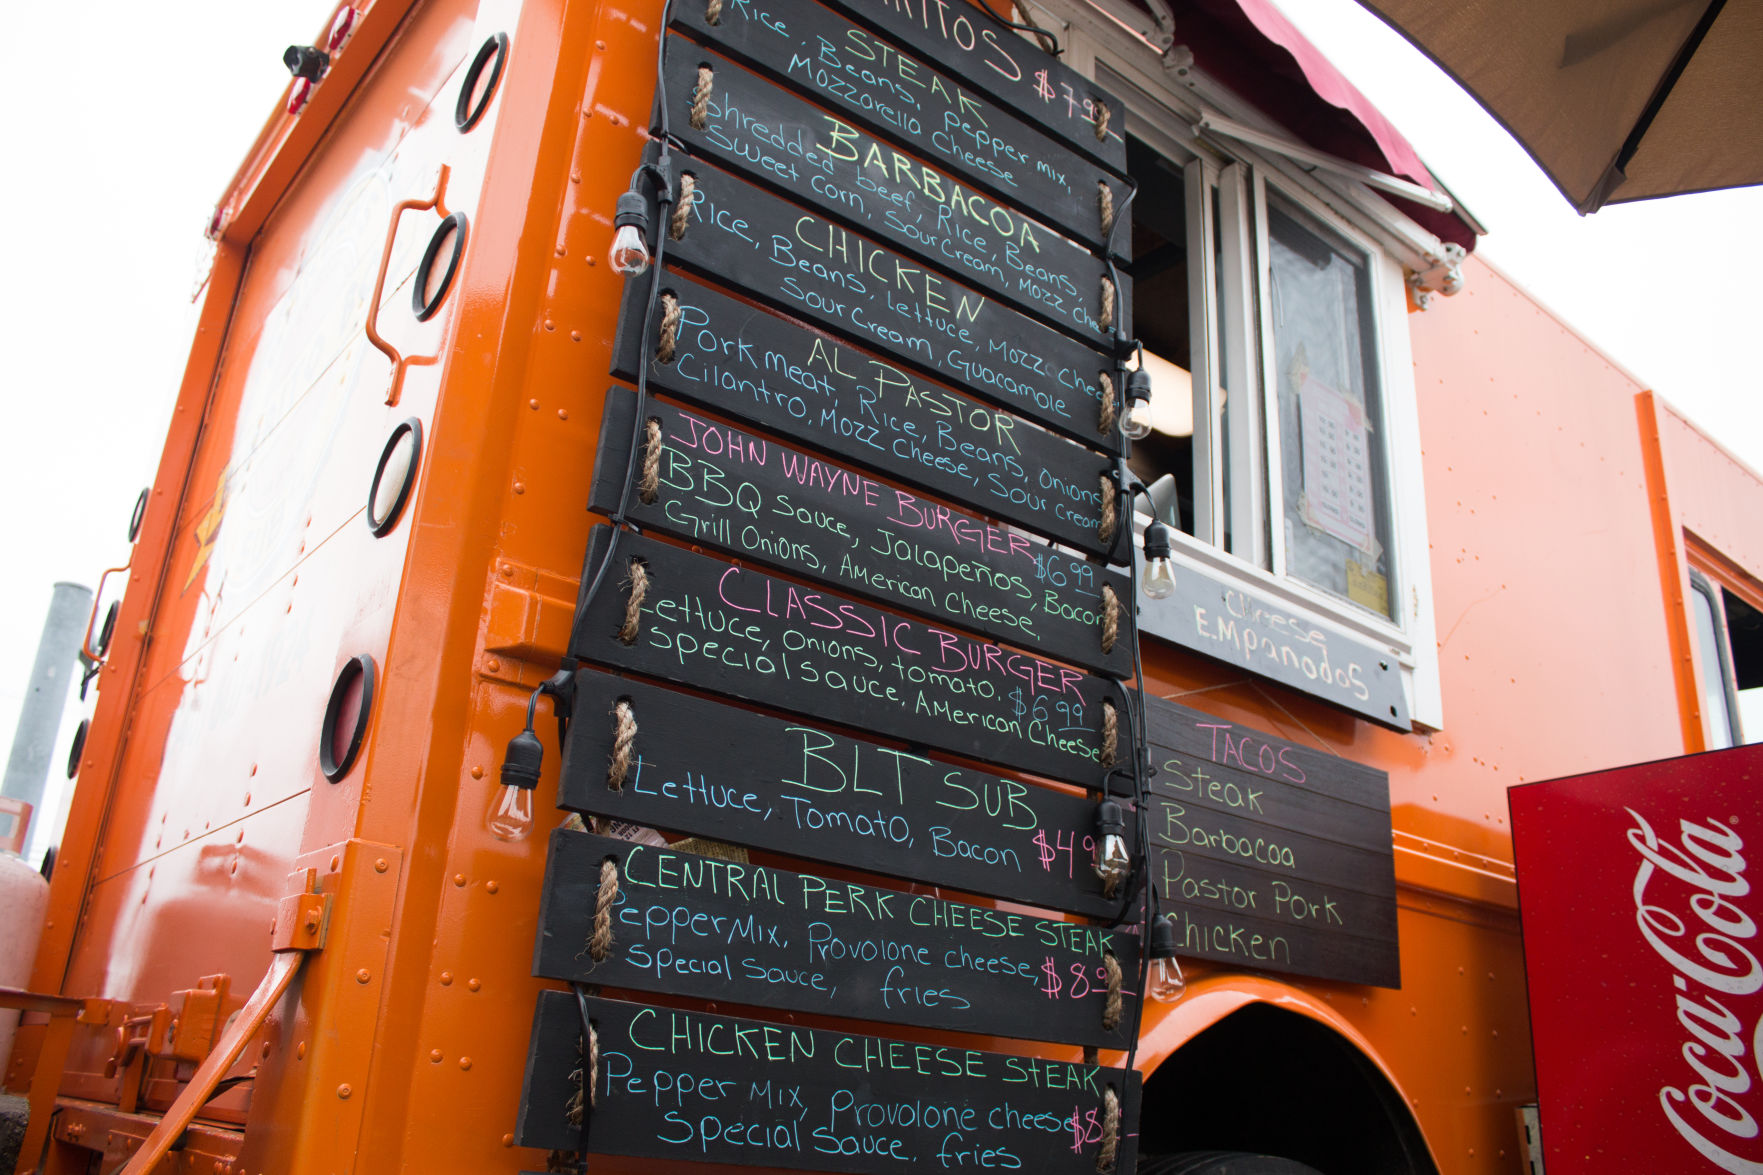 RITOS $7.99
STEAK
Rice, Beans, Pepper mix,
Mozzarella Cheese
BARBACOA
Shredded beef, Rice, Beans,
Sweet Corn, Sour Cream, Mozz Chee
CHICKEN
Rice, Beans, Lettuce, Mozz Chee
Sour Cream, Guacamole
AL PASTOR
Pork meat, Rice, Beans, Onions
Cilantro, Mozz Cheese, Sour Cream
JOHN WAYNE BURGER $6.99
BBQ Sauce, Jalapeños, Bacon
Grill Onions, American Cheese.
CLASSIC BURGER
Lettuce, Onions, tomato. $6.99
Special Sauce, American Cheese
BLT SUB
Lettuce, Tomato, Bacon $4.9
CENTRAL PERK CHEESE STEAK
Pepper Mix, Provolone cheese, $8.9
Special Sauce, fries
CHICKEN CHEESE STEAK
Pepper Mix, Provolone cheese $8
Special Sauce, fries
Cheese
EMPANADAS
TACOS
Steak
Barbacoa
Pastor Pork
Chicken
Coca-Cola